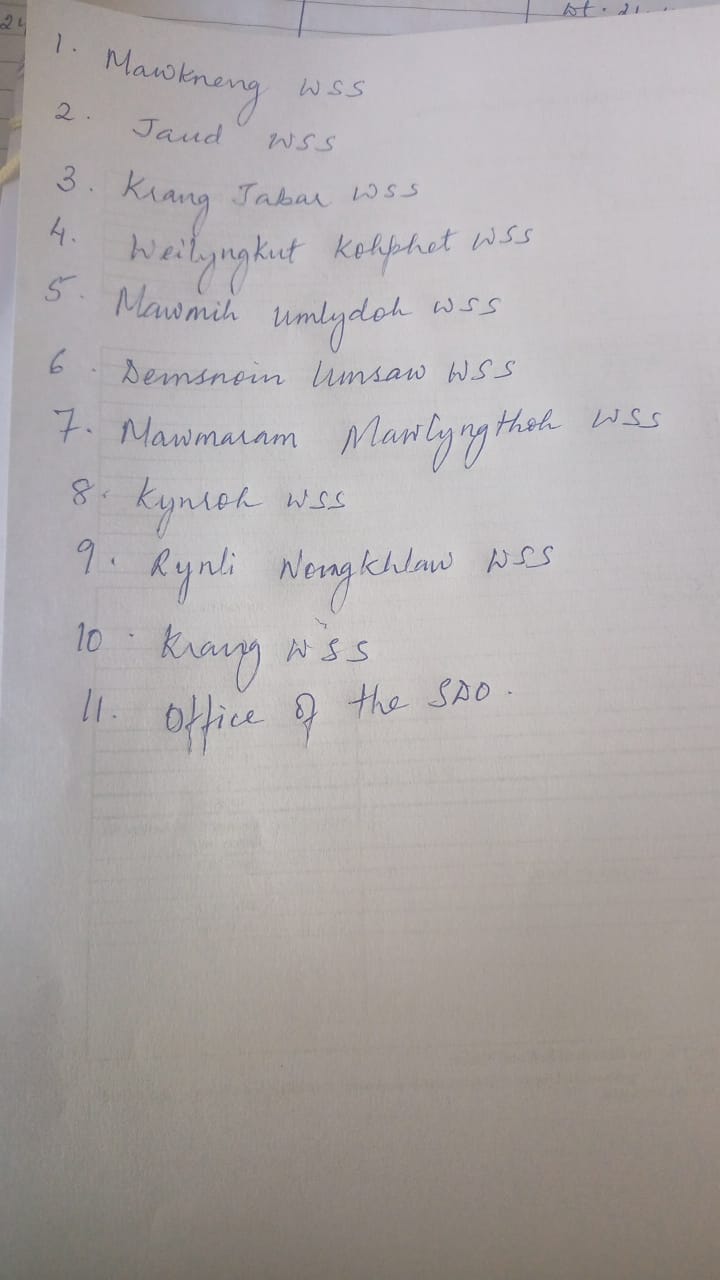 24
Dt. 21
1. Mawkneng WSS
2. Jaud WSS
3. Krang Jabar WSS
4. Weilyngkut Kohphet WSS
5. Mawmih Umlydoh WSS
6. Demsnoin Umsaw WSS
7. Mawmaram Mawlyngthoh WSS
8. Kynroh WSS
9. Rynli Nongkhlaw WSS
10. Krang WSS
11. Office of the SDO.